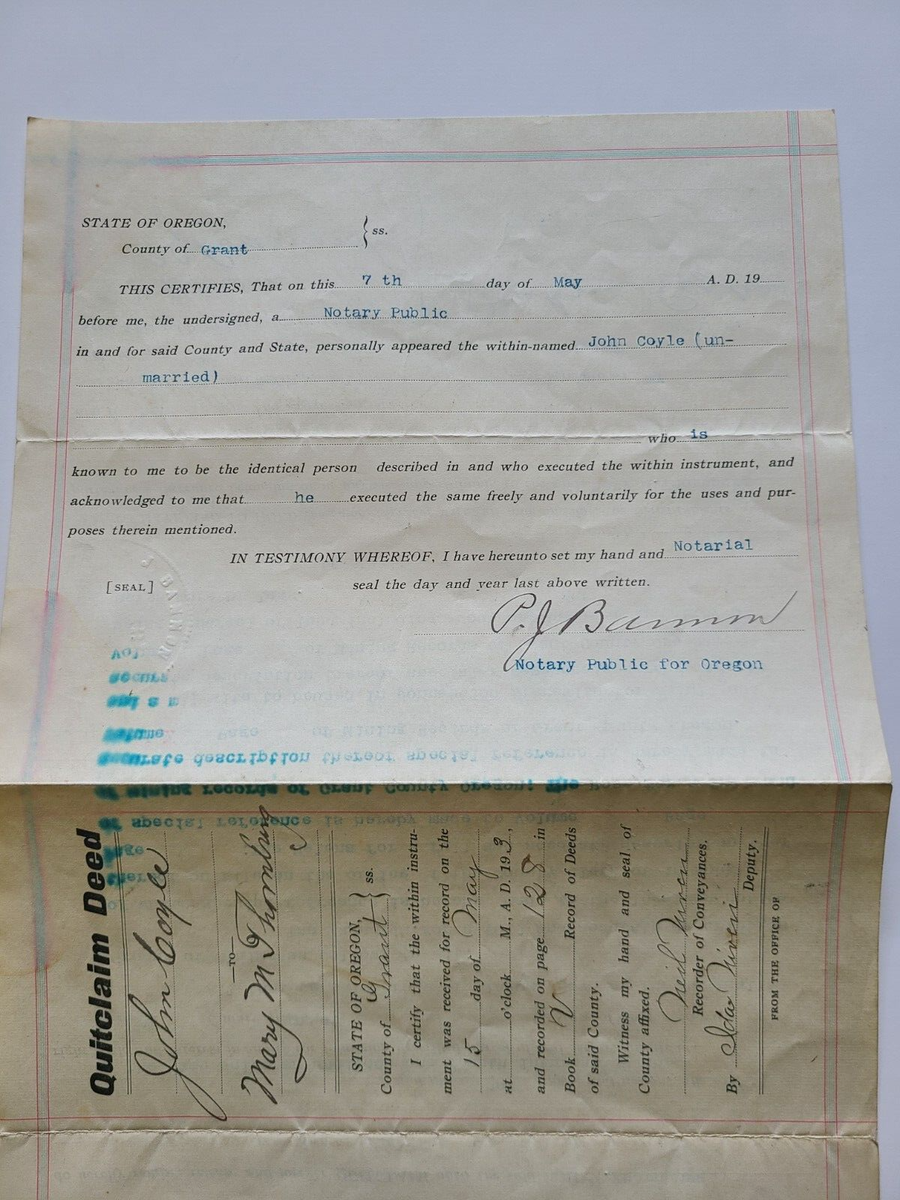 STATE OF OREGON,
County of Grant } ss.
THIS CERTIFIES, That on this 7 th day of May A. D. 19
before me, the undersigned, a Notary Public
in and for said County and State, personally appeared the within-named John Coyle (un-
married)
who is
known to me to be the identical person described in and who executed the within instrument, and
acknowledged to me that he executed the same freely and voluntarily for the uses and pur-
poses therein mentioned.
IN TESTIMONY WHEREOF, I have hereunto set my hand and Notarial
[SEAL] seal the day and year last above written.
P. J. Bannon
Notary Public for Oregon
Quitclaim Deed
John Coyle
—TO—
Mary M Thornburg
STATE OF OREGON,
County of Grant } ss.
I certify that the within instru-
ment was received for record on the
15 day of May
at o'clock M., A. D. 193,
and recorded on page 128 in
Book V Record of Deeds
of said County.
Witness my hand and seal of
County affixed.
Neil Niven
Recorder of Conveyances.
By Ida Niven
Deputy.
FROM THE OFFICE OF